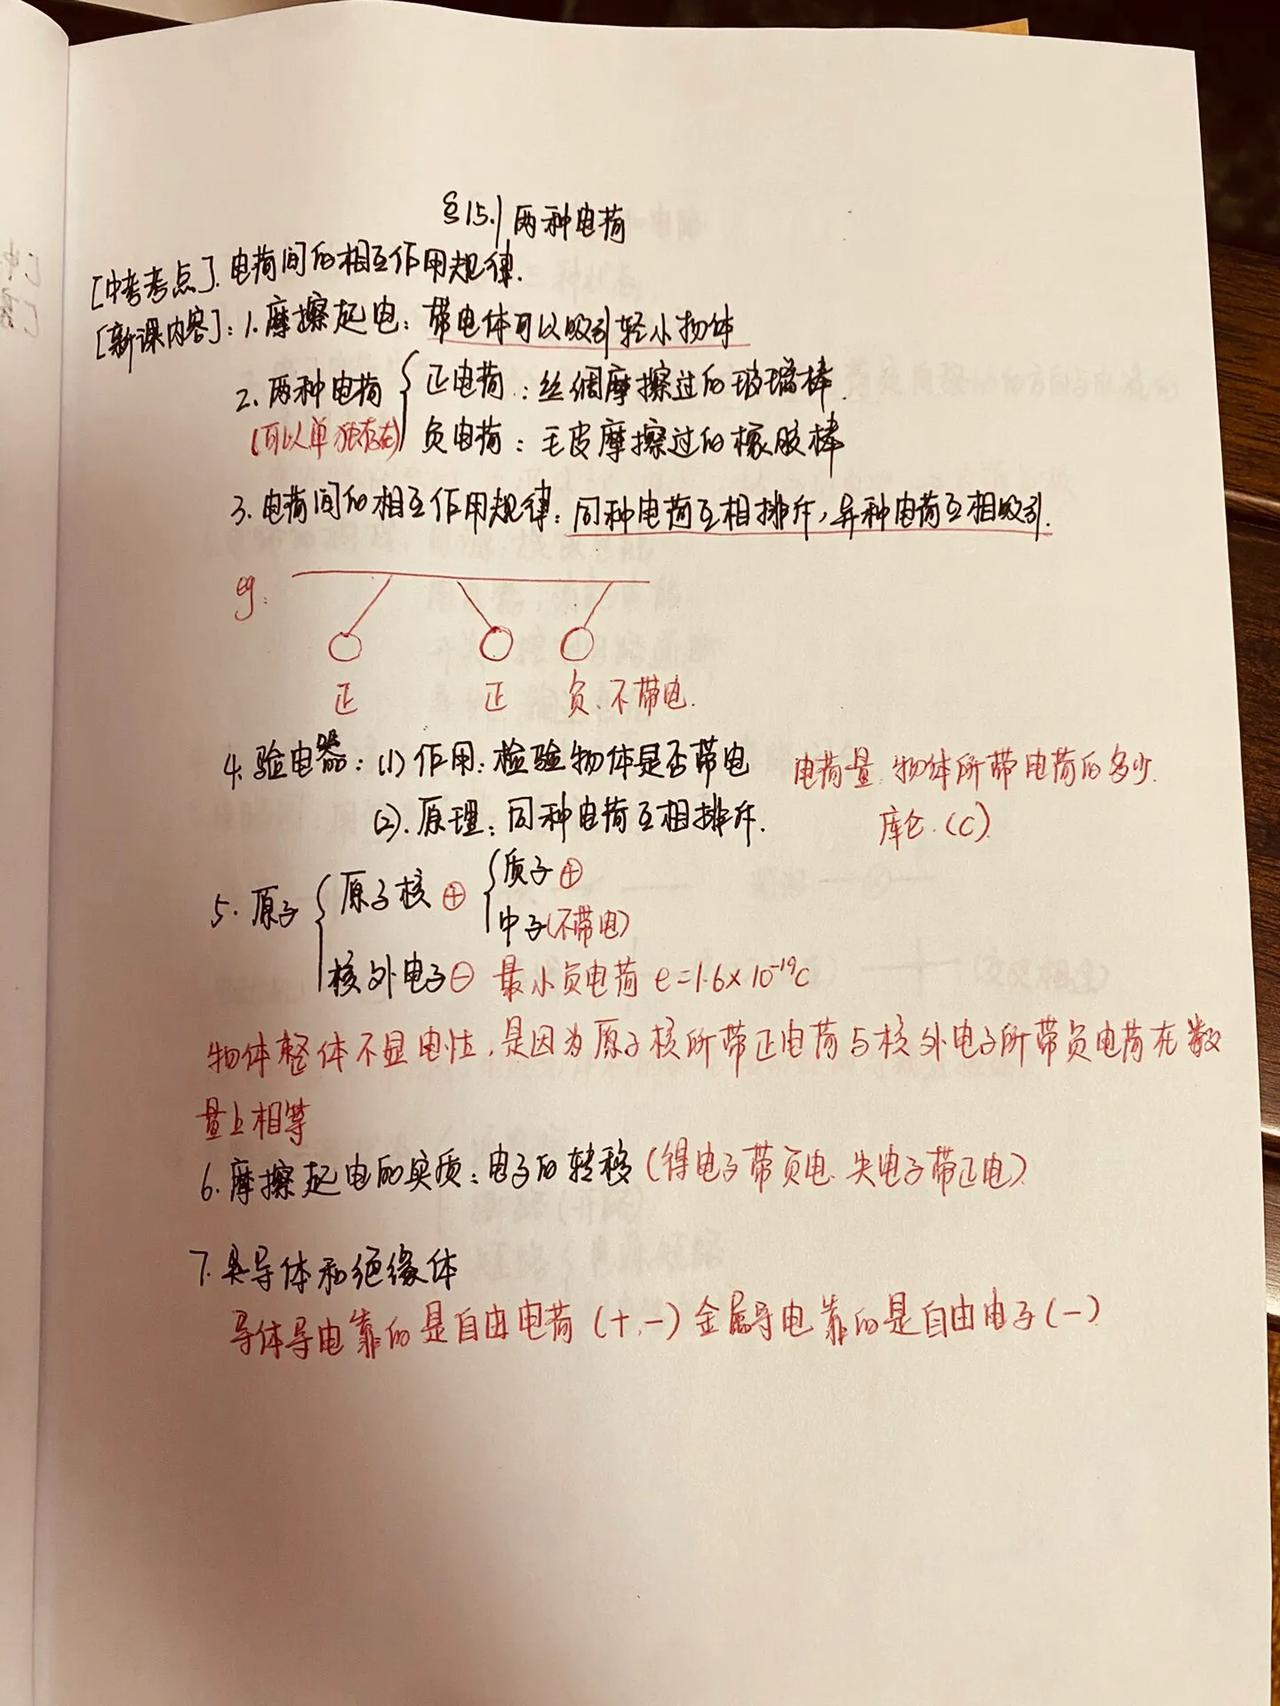 §15.1 两种电荷
[中考考点]. 电荷间的相互作用规律.
[新课内容]: 1. 摩擦起电: 带电体可以吸引轻小物体
2. 两种电荷 { 正电荷: 丝绸摩擦过的玻璃棒.
(可以单独存在) 负电荷: 毛皮摩擦过的橡胶棒
3. 电荷间的相互作用规律: 同种电荷互相排斥, 异种电荷互相吸引.
eg:
正 正 负. 不带电.
4. 验电器: (1) 作用: 检验物体是否带电 电荷量. 物体所带电荷的多少.
(2). 原理: 同种电荷互相排斥. 库仑. (C)
5. 原子 { 原子核 ⊕ { 质子 ⊕
中子(不带电)
核外电子 ⊖ 最小负电荷 e=1.6×10⁻¹⁹C
物体整体不显电性, 是因为原子核所带正电荷与核外电子所带负电荷在数
量上相等
6. 摩擦起电的实质: 电子的转移 (得电子带负电. 失电子带正电)
7. 导体和绝缘体
导体导电靠的是自由电荷 (+, -) 金属导电靠的是自由电子 (-)